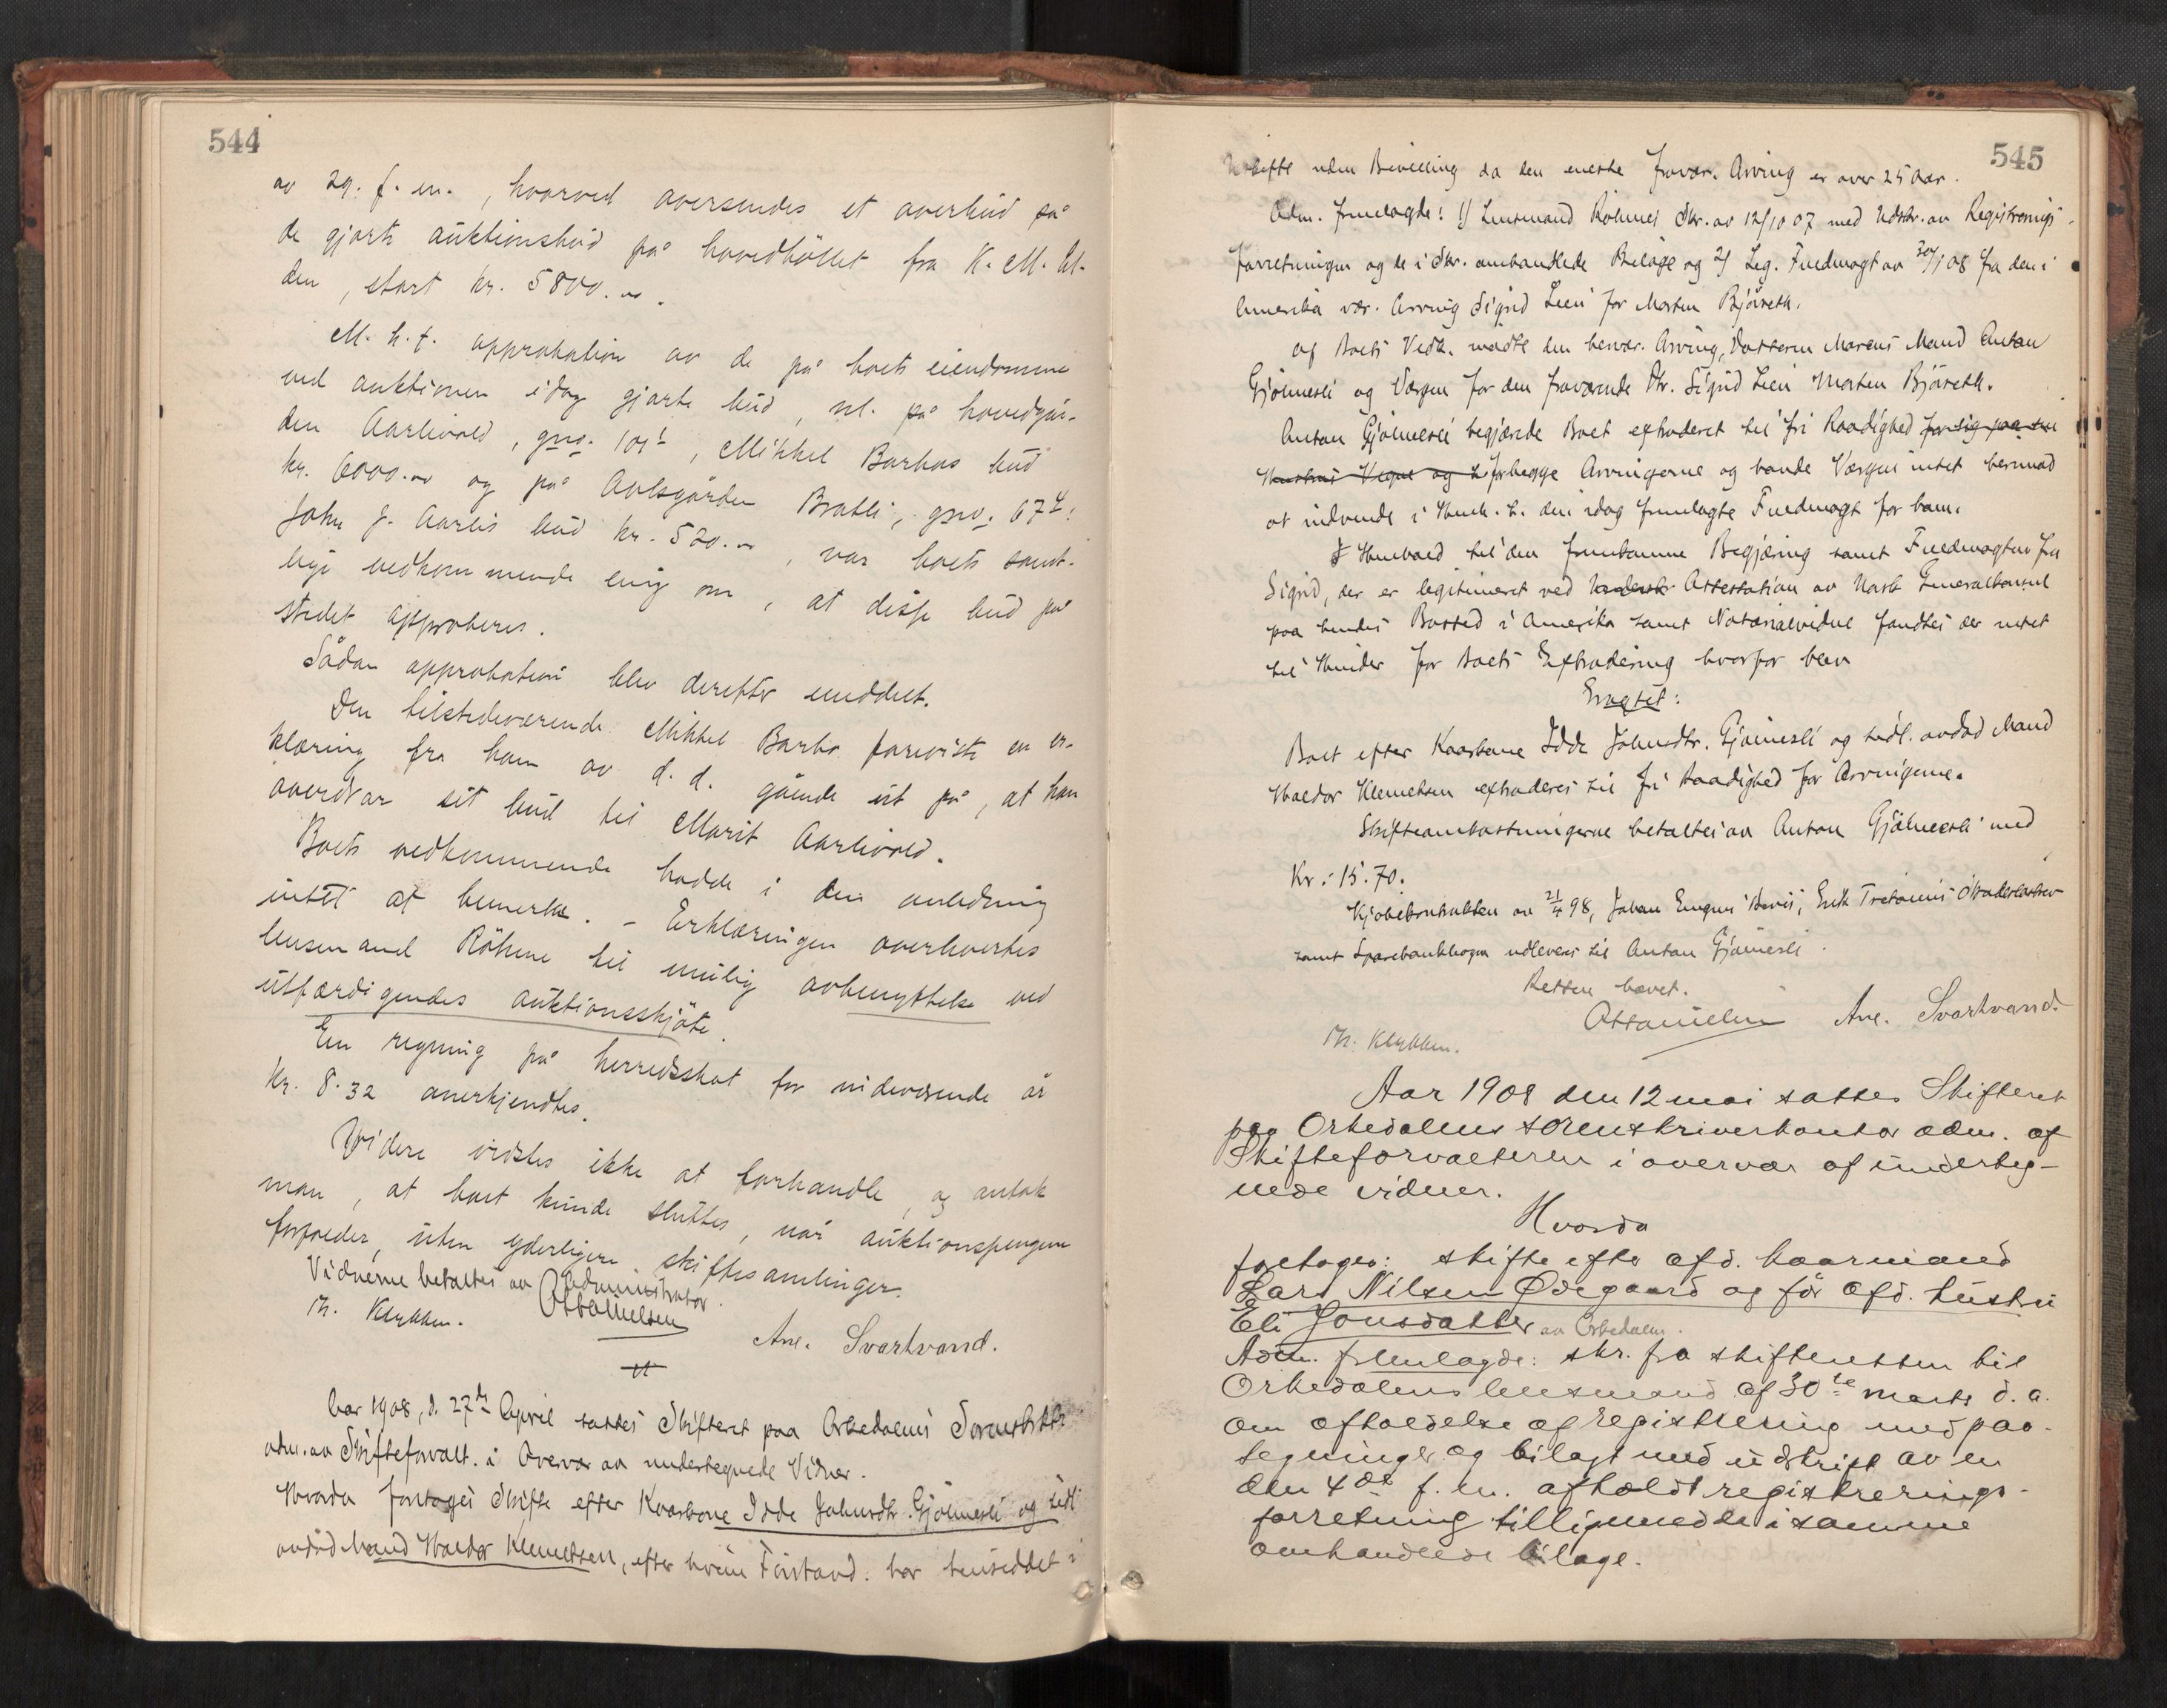 544
av 29. f. m., hvorved oversendes et overbud på
de gjorte auktionsbud på hovedbøllet fra K. M. Ul-
den, stort kr. 5800.oo.
M. h. t. approbation av de på boets eiendomme
ved auktionen idag gjorte bud, nl. på hovedgår-
den Aarlivold, gno. 101¹, Mikkel Barbos bud
kr. 6000.oo og på Avlsgården Bratli, gno. 67⁴:
John J. Aarlis bud kr. 520.oo, var boets samt-
lige vedkommende enig om, at disse bud på
stedet approberes.
Sådan approbation blev derefter meddelt.
Den tilstedeværende Mikkel Barbo foreviste en er-
klæring fra ham av d. d. gående ut på, at han
overdrar sit bud til Marit Aarlivold.
Boets vedkommende hadde i den anledning
intet at bemerke. - Erklæringen overleveres
lensmand Röhme til mulig avbenyttelse ved
utfærdigendes auktionsskjöte.
En regning på herredsskat for indeværende år
kr. 8.32 anerkjendtes.
Videre vidstes ikke at forhandle, og antok
man, at boet kunde sluttes, når auktionspengene
forfalder, uten yderligere skiftesamlinger.
Vidnerne betaltes av Administrator.
Th. Klykken. Ottanielsen
Ane. Svartvand.
Aar 1908, d. 27de April sattes Skifteret paa Orkedalens Sorenskr.
adm. av Skifteforvalt. i Overvær av undertegnede Vidner.
Hvorda foretoges Skifte efter Kaarkone Idde Johnsdtr. Gjølmesli og tidl.
avdød Mand Haldor Klemetsen, efter hvem Førstavd. har hensiddet i
545
Uskifte uden Bevilling da den eneste fravær. Arving er over 25 Aar.
Adm. fremlagde: 1) Lensmand Röhmes Skr. av 12/10 07 med Udskr. av Registrerings-
forretningen og de i Skr. omhandlede Bilage og 2) Leg. Fuldmagt av 30/1 08 fra den i
Amerika vær. Arving Sigrid Lien for Morten Björeth.
Af Boets Vedk. mødte den hervær. Arving, Datteren Marens Mand Anton
Gjölmesli og Værgen for den fraværende Dtr. Sigrid Lien Morten Björeth.
Anton Gjölmesli begjærede Boet extraderet til fri Raadighed for sig paa sin
Hustrus Vegne og t for begge Arvingerne og havde Værgen intet herimod
at indvende i Henh. t. den idag fremlagte Fuldmagt for ham.
I Henhold til den fremkomne Begjæring samt Fuldmagten fra
Sigrid, der er legitimeret ved Attestation av Norsk Generalkonsul
paa hendes Bosted i Amerika samt Notarialvidne fandtes der intet
til Hinder for Boets Extradering hvorfor blev
Eragtet:
Boet efter Kaarkone Idde Johnsdtr. Gjølmesli og tidl. avdød Mand
Haldor Klemetsen extraderes til fri Raadighed for Arvingerne.
Skifteomkostningerne betaltes av Anton Gjölmesli med
Kr. 15.70.
Kjøbekontrakten av 21/4 98, Johan Engens Bevis, Erik
samt Sparebankbogen udleveres til Anton Gjølmesli.
Retten hævet.
Ottanielsen Ane. Svartvand.
Th. Klykken.
Aar 1908 den 12 mai sattes Skifteret
paa Orkedalens sorenskriverkontor adm. af
Skifteforvalteren i overvær af underteg-
nede vidner.
Hvorda
foretoges: skifte efter afd. kaarmand
Lars Nilsen Ødegaard og før afd. hustru
Eli Jonsdatter av Orkedalen.
Adm. fremlagde: skr. fra skifteretten til
Orkedalens lensmand af 30te marts d. a.
om afholdelse af registrering med paa-
tegninger og bilagt med udskrift av en
den 4de f. m. afholdt registrerings-
forretning tilligemed de i samme
omhandlede bilage.